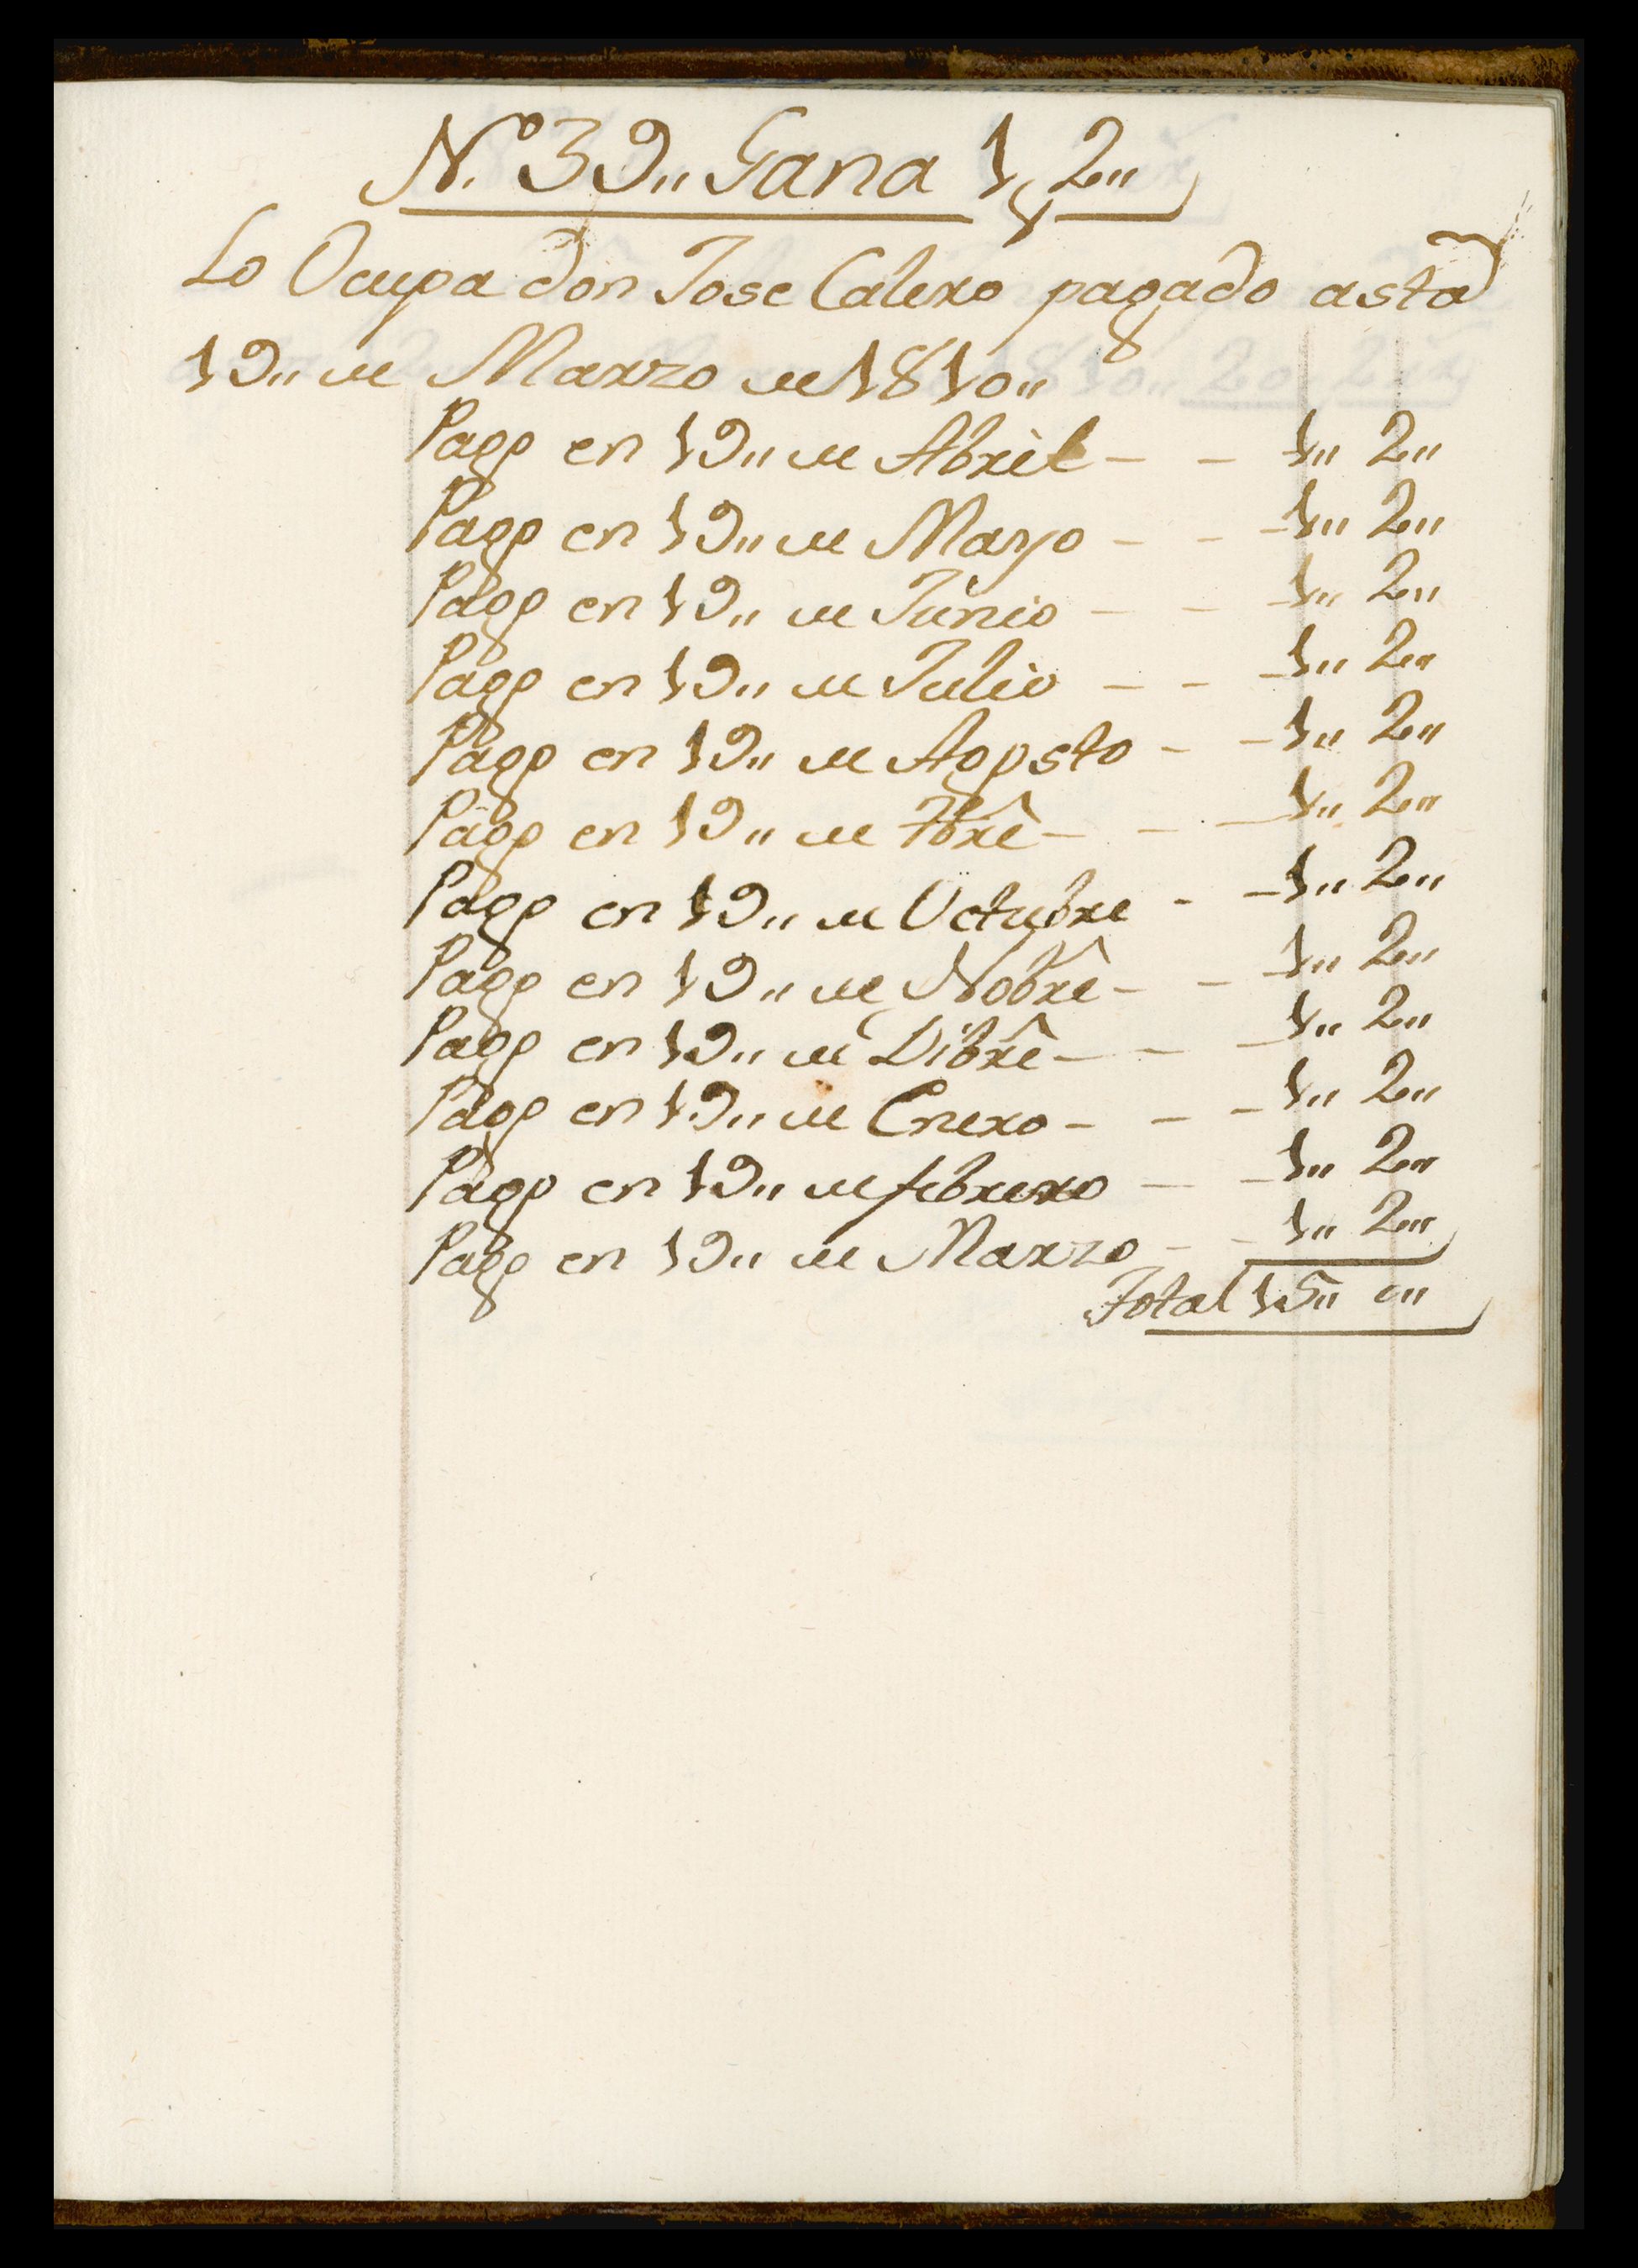 N.º 39,, Gana 1,, 2,,
Lo Ocupa don Jose Calero pagado asta
19,, de Marzo de 1810,,
Pago en 19,, de Abril - - 1,, 2,,
Pago en 19,, de Mayo - - - 1,, 2,,
Pago en 19,, de Junio - - - 1,, 2,,
Pago en 19,, de Julio - - - 1,, 2,,
Pago en 19,, de Agosto - - 1,, 2,,
Pago en 19,, de 7brê - - - 1,, 2,,
Pago en 19,, de Octubre - - 1,, 2,,
Pago en 19,, de Nobrê - - - 1,, 2,,
Pago en 19,, de Dibrê - - - 1,, 2,,
Pago en 19,, de Enero - - - 1,, 2,,
Pago en 19,, de febrero - - 1,, 2,,
Pago en 19,, de Marzo - - 1,, 2,,
Total 15,, 0,,